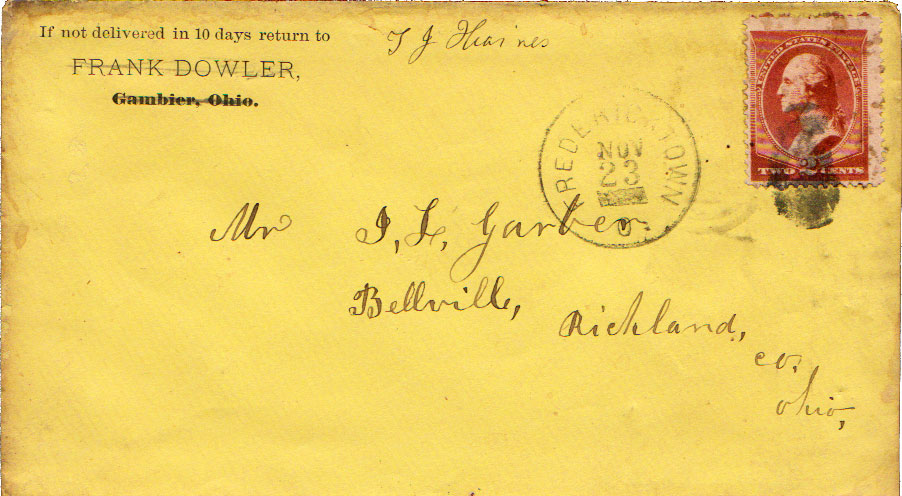 If not delivered in 10 days return to
FRANK DOWLER,
Gambier, Ohio.
T J Haines
UNITED STATES POSTAGE
TWO CENTS
FREDERICKTOWN
NOV
23
O.
Mr J. L. Garber
Bellville,
Richland,
co.
Ohio,